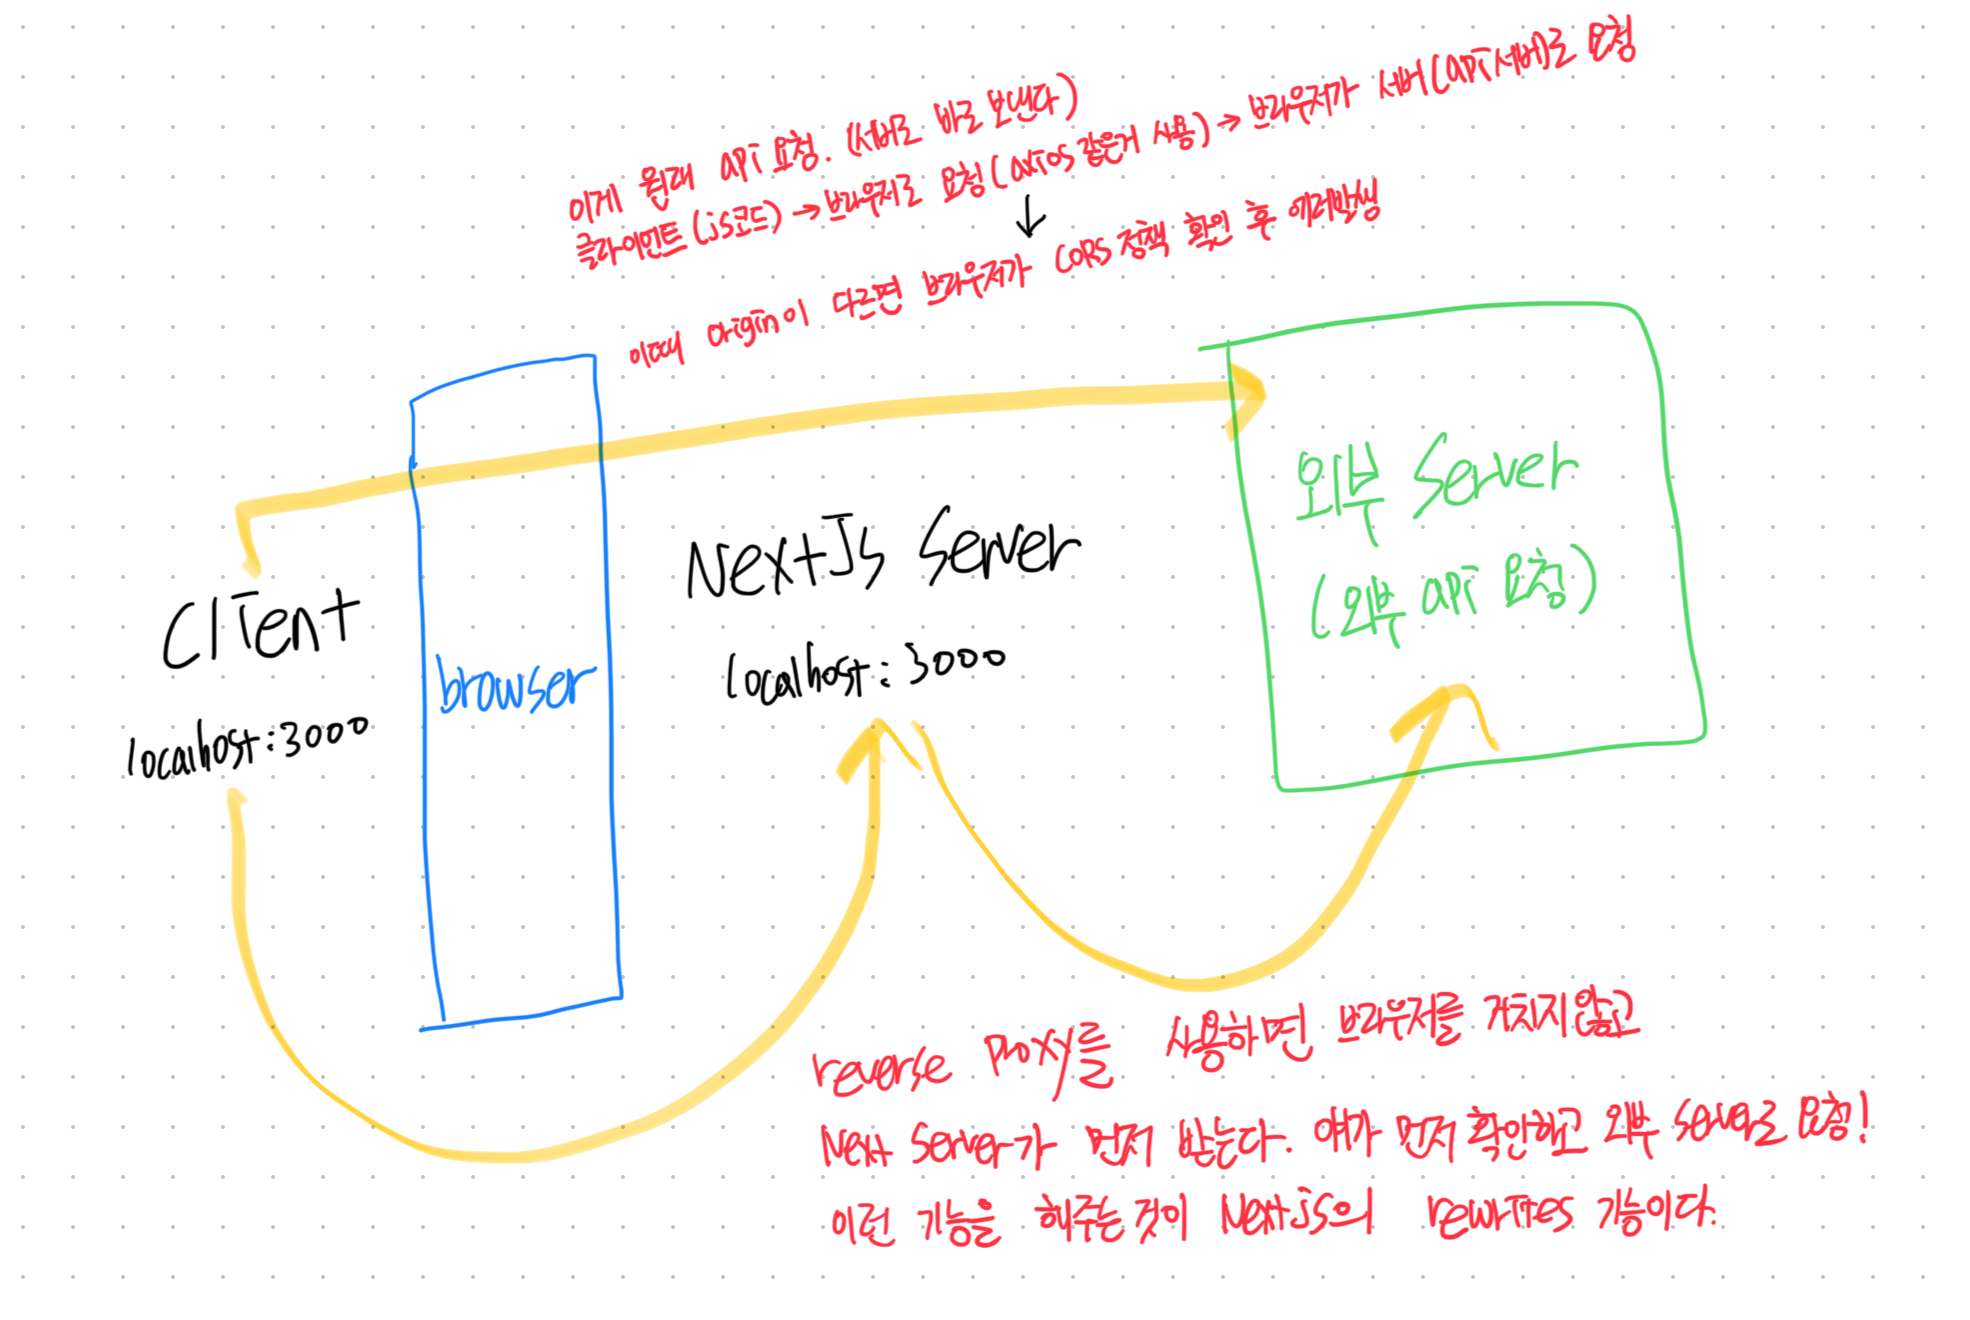 이게 원래 api 요청. (서버로 바로 보낸다)
클라이언트 (js코드) → 브라우저로 요청 (axios 같은거 사용) → 브라우저가 서버(api서버)로 요청
↓
이때 origin이 다르면 브라우저가 CORS 정책 확인 후 에러발생
외부 Server
(외부 api 요청)
NextJs Server
localhost:3000
Client
localhost:3000
browser
reverse proxy를 사용하면 브라우저를 거치지않고
Next Server가 먼저 받는다. 얘가 먼저 확인하고 외부 Server로 요청!
이런 기능을 해주는것이 Nextjs의 rewrites 기능이다.